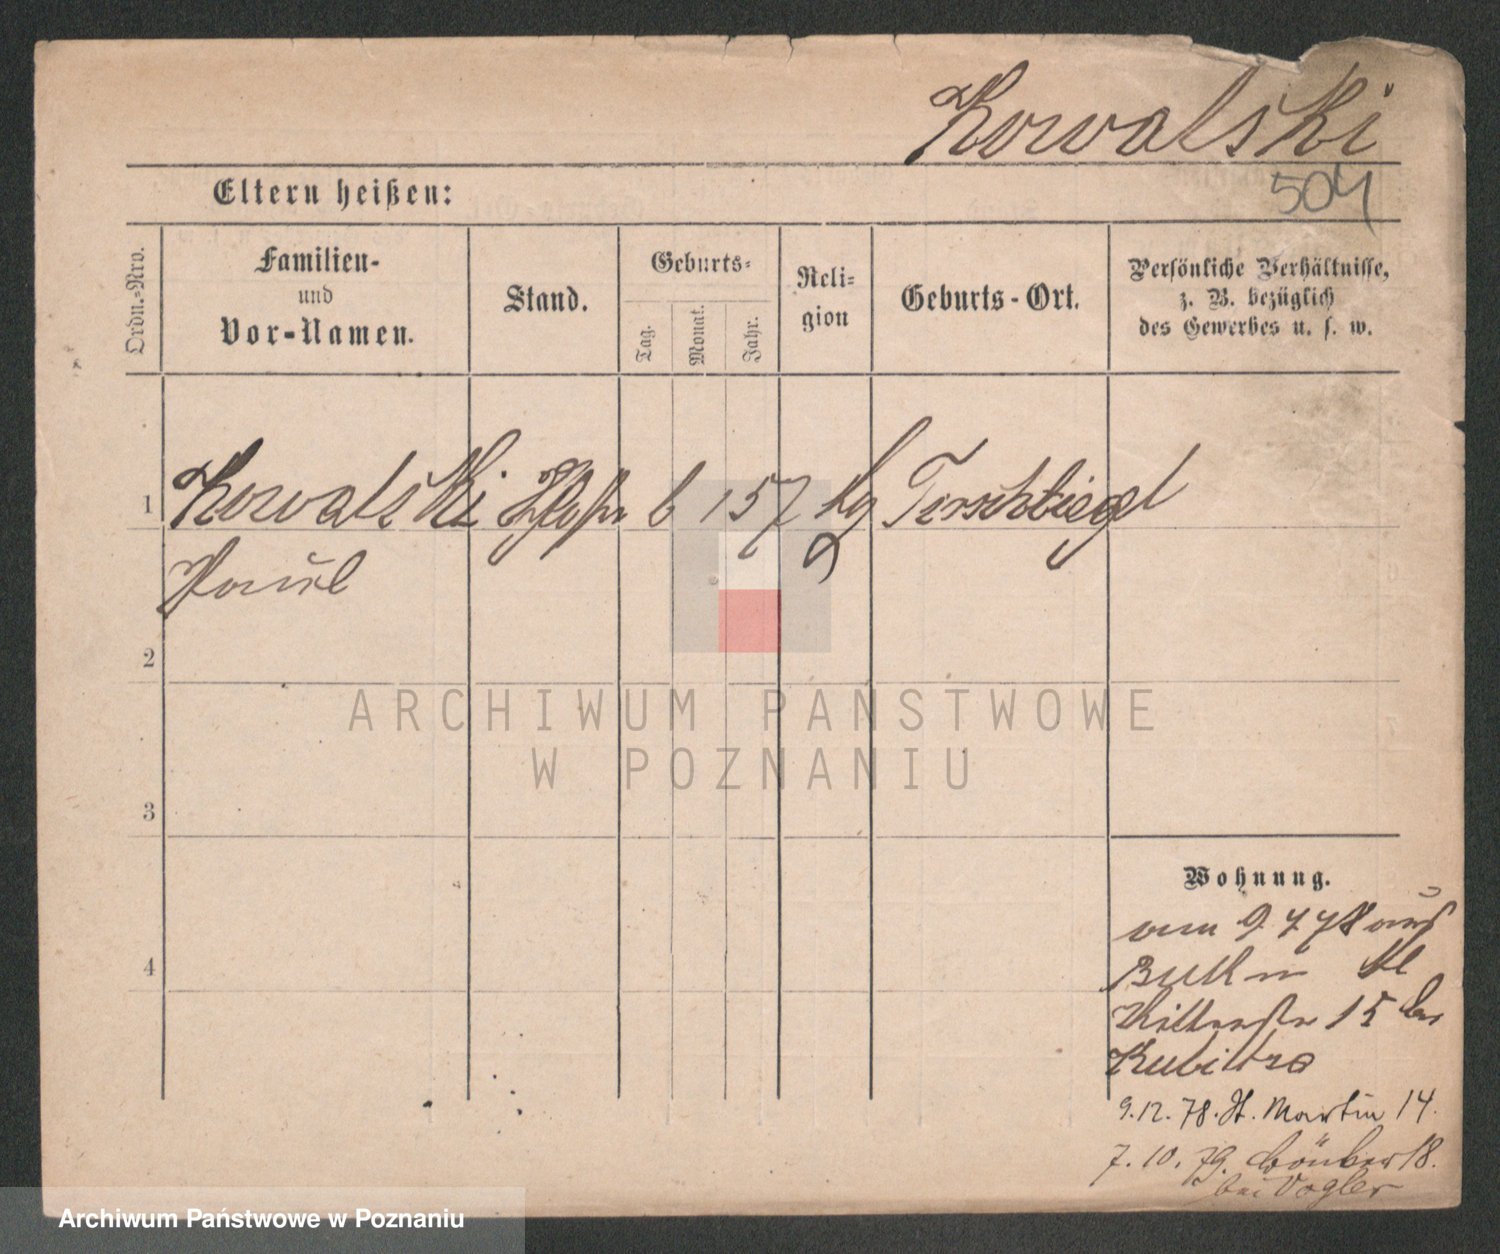 Kowalski
504
Eltern heißen:
Ordn.=Nro.
Familien-
und
Vor-Namen.
Stand.
Geburts=
Tag.
Monat.
Jahr.
Reli=
gion
Geburts-Ort.
Persönliche Verhältnisse,
z. B. bezüglich
des Gewerbes u. s. w.
1 Kowalski 6 1 57 Tirschtiegel
Paul
2
3
4
Wohnung.
9 7 78 aus
15 bei
9.12.78. St. Martin 14.
7.10.79. 18.
bei Vogler
ARCHIWUM PAŃSTWOWE
W POZNANIU
Archiwum Państwowe w Poznaniu